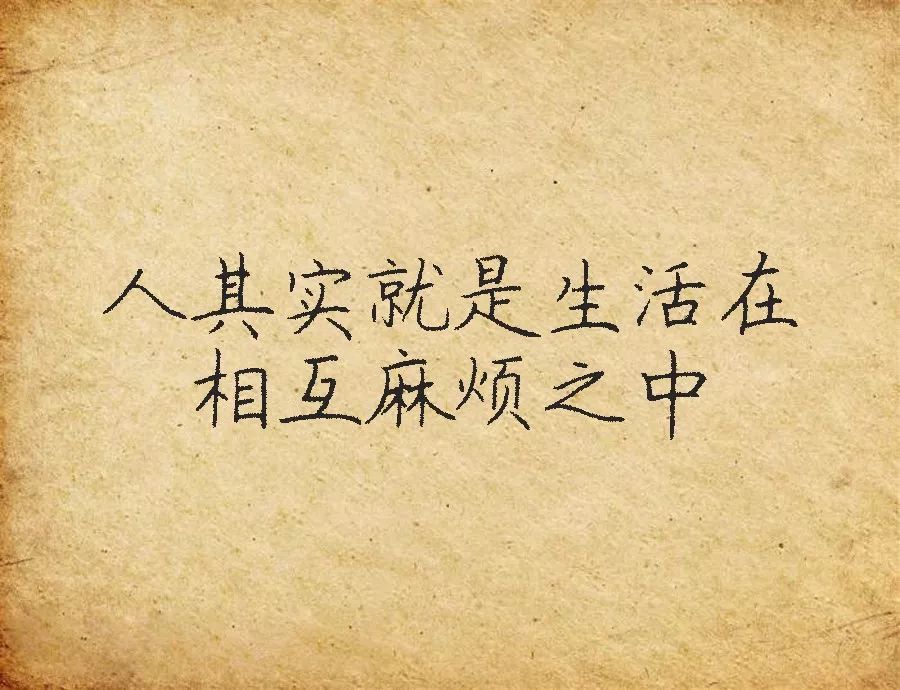 人其实就是生活在
相互麻烦之中